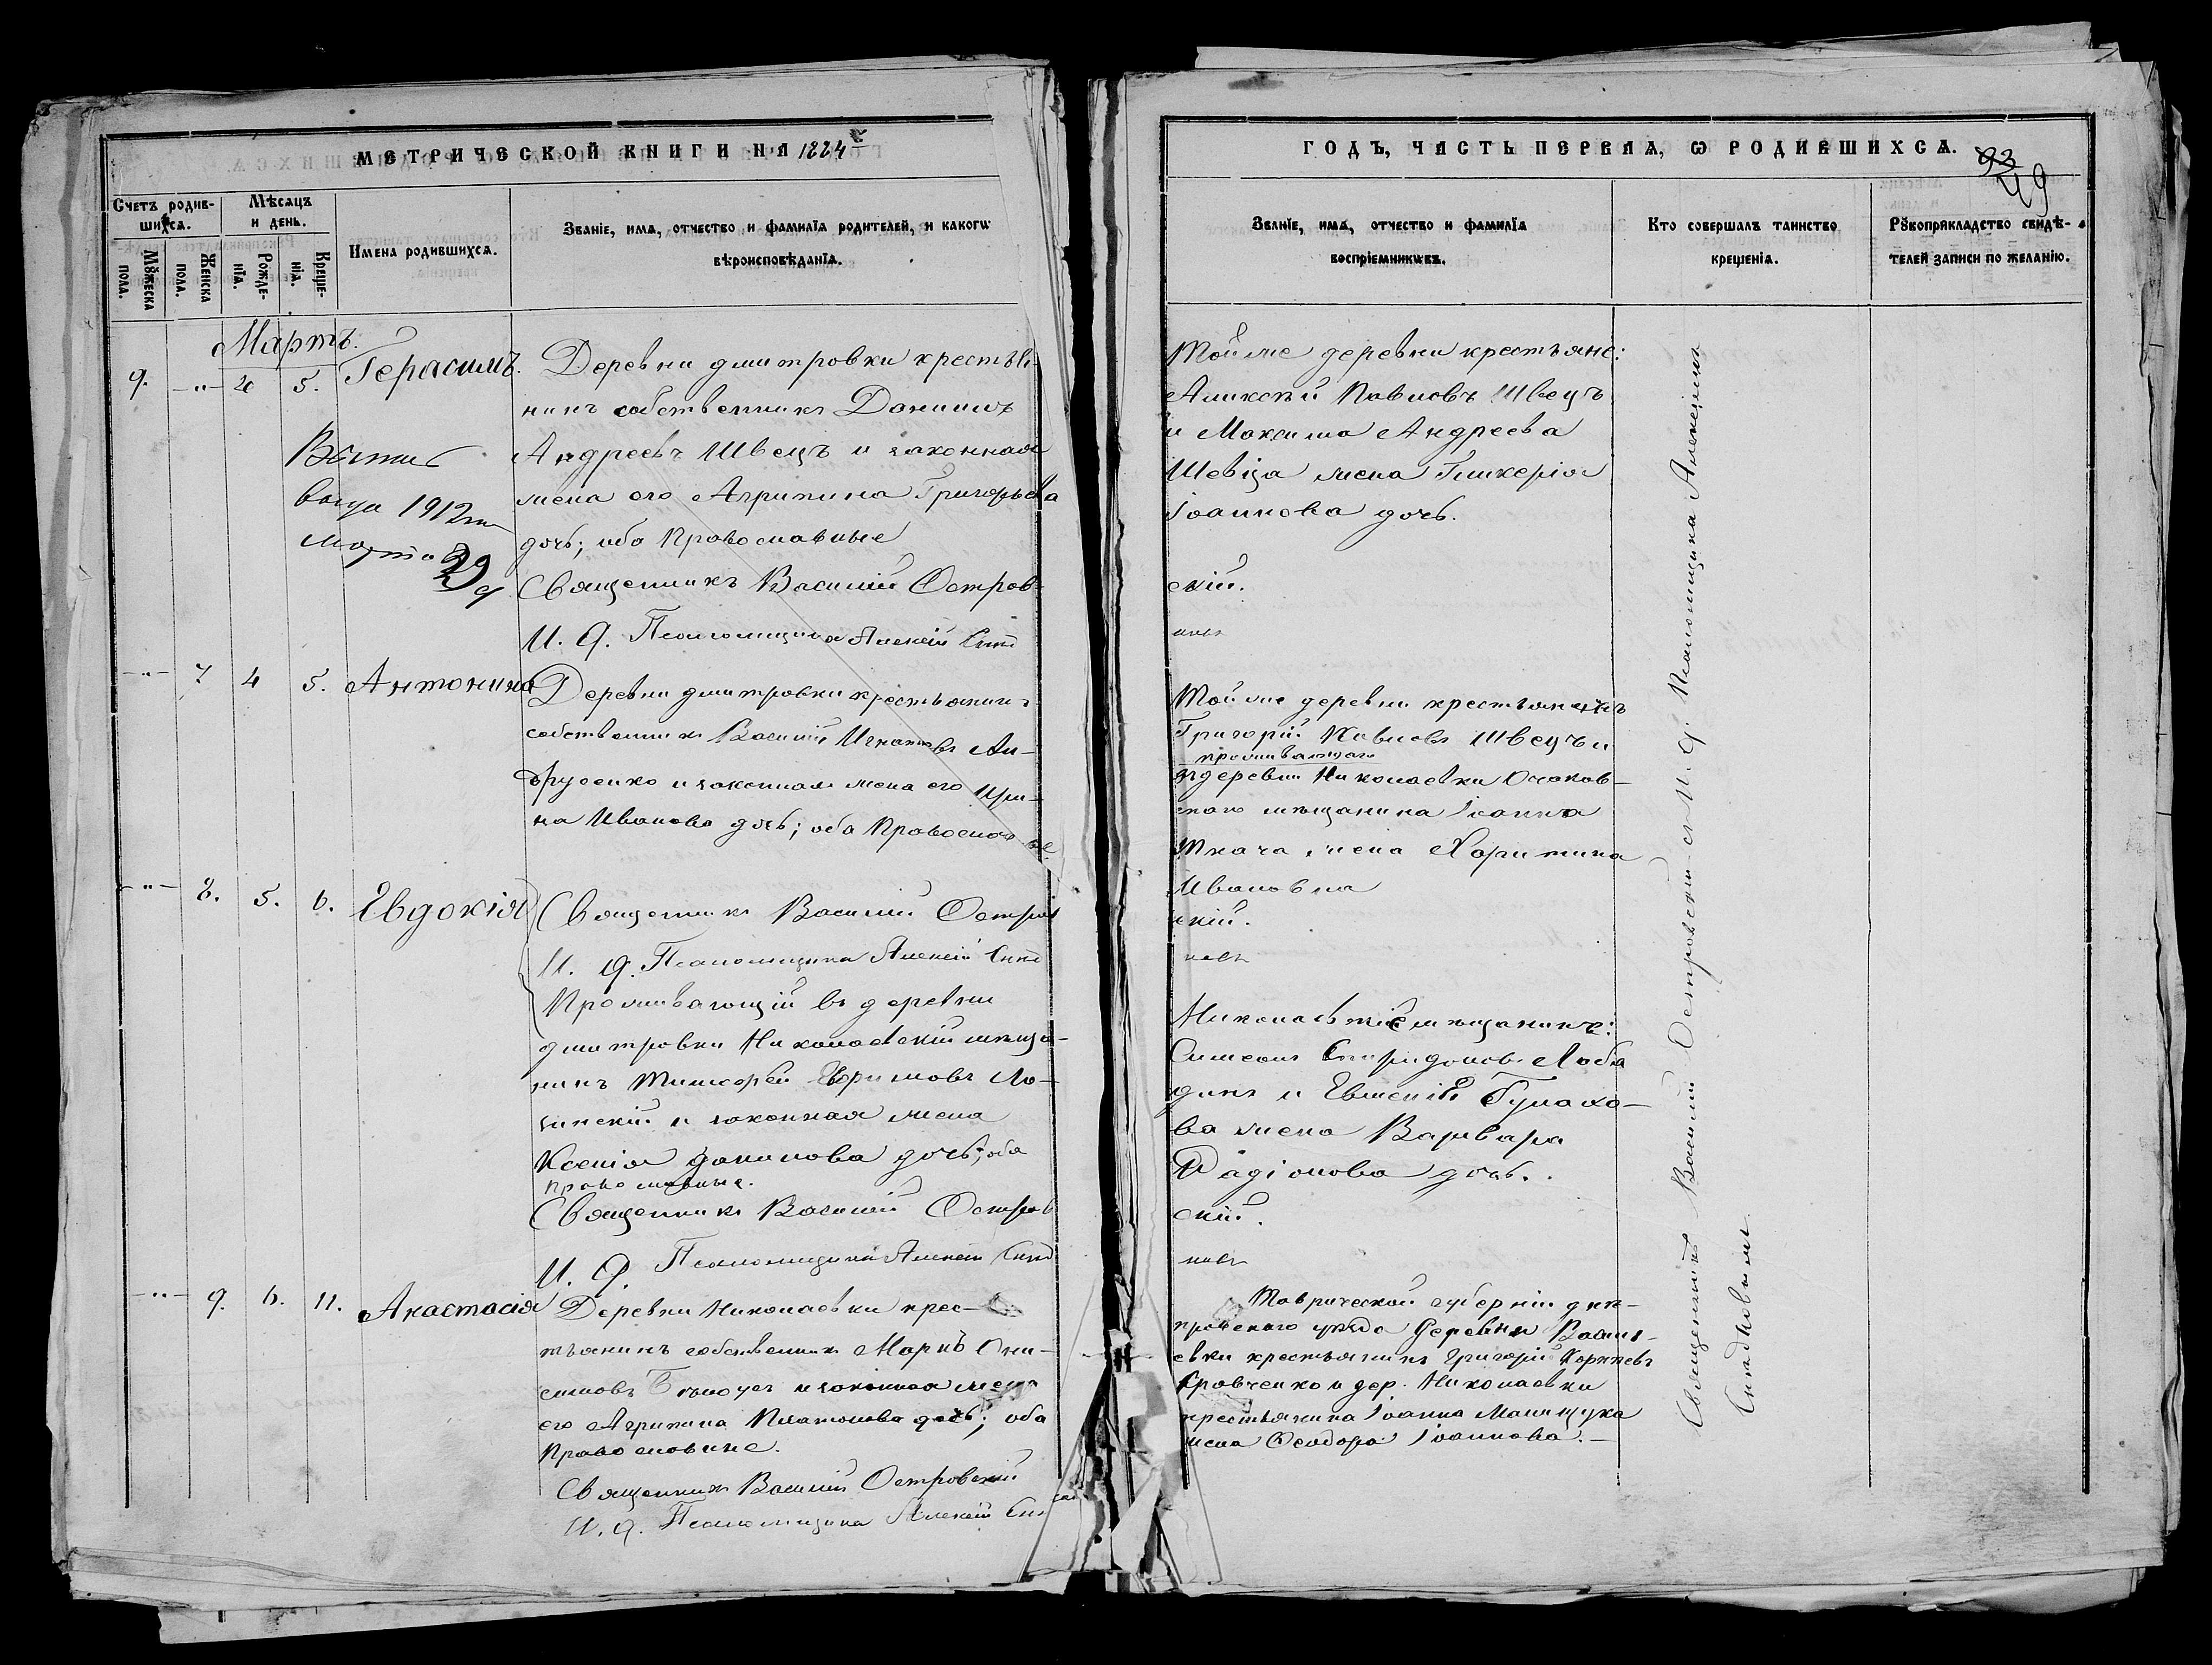 МЕТРИЧЕСКОЙ КНИГИ НА 1884й
Счетъ родив-
шихся.
Мѣсяцъ
и день.
Мужеска
пола.
Женска
пола.
Рожде-
нїя.
Креще-
нїя.
Имена родившихся.
Званїе, имя, отчество и фамилїя родителей, и какогѡ
вѣроисповѣданїя.
Мартъ.
9. -"- 4 5. Герасимъ.
Деревни Дмитровки крестья-
нинъ собственникъ Даниилъ
Андреевъ Швецъ и законная
жена его Агрипина Григорьева
дочь; оба Православные
Священникъ Василій Островскій.
И. д. Псаломщика Алексій
1912
марта 29
-"- 7 4 5. Антонина
Деревни Дмитровки крестьянинъ
собственникъ Василій Игнатовъ Ан-
друсенко и законная жена его Ири-
на Иванова дочь; оба Православные.
-"- 8. 5. 6. Евдокія
Священникъ Василій Островскій.
И. д. Псаломщика Алексій
Проживающій въ деревни
Дмитровки Николаевскій мѣща-
нинъ Тимофей Ефимовъ Ло-
зинскій и законная жена
Ксенія Данилова дочь; оба
православные.
Священникъ Василій Островскій.
И. д. Псаломщика Алексій
-"- 9. 6. 11. Анастасія
Деревни Николаевки крес-
тьянинъ собственникъ Маркъ Они-
симовъ и законная жена
его Агрипина Платонова дочь; оба
Православные.
Священникъ Василій Островскій
И. д. Псаломщика Алексій
ГОДЪ, ЧАСТЬ ПЕРВАЯ, Ѡ РОДИВШИХСЯ.
93
49
Званїе, имя, отчество и фамилїя
воспрїемникѡвъ.
Кто совершалъ таинство
крещенїя.
Рꙋкоприкладство свидѣ-
телей записи по желанїю.
Той же деревни крестьяне:
Алексѣй Павловъ Швецъ
и Максима Андреева
Шевца жена Гликерія
Іоаннова дочь.
Той же деревни крестьянинъ
Григорій Павловъ Швецъ и
проживающаго
въ деревни Николаевки Очаков-
скаго мѣщанина Іоанна
Ткача жена Харитина
Ивановна
Николаевскіе мѣщане:
Симеонъ Спиридоновъ Лоба
динъ и Евгенія Гулахо-
ва жена Варвара
Радіонова дочь.
Таврической губерніи днѣ-
провскаго уѣзда деревни Васил-
евки крестьянинъ Григорій Корнѣевъ
Кравченко и дер. Николаевки
крестьянина Іоанна Манищука
жена Ѳеодора Іоаннова.-
Священникъ Василій Островскій съ И. д. Псаломщика Алексіемъ